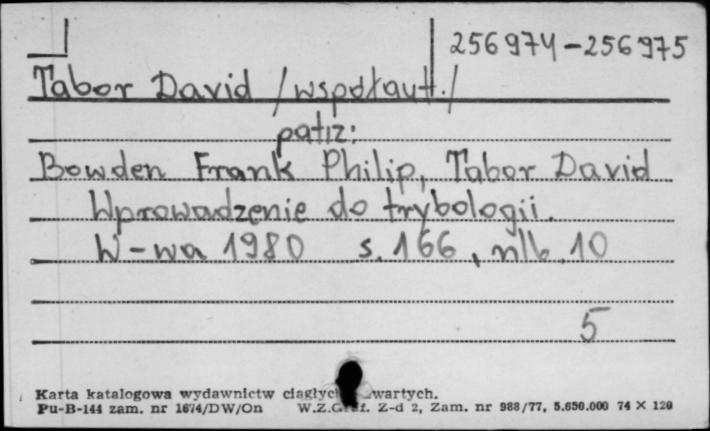 256974-256975
Tabor David /współaut./
patrz:
Bowden Frank Philip, Tabor David
Wprowadzenie do trybologii.
W-wa 1980 s. 166, nlb. 10
5
Karta katalogowa wydawnictw ciągłych zwartych.
Pu-B-144 zam. nr 1674/DW/On W.Z.Graf. Z-d 2, Zam. nr 988/77, 5.650.000 74 X 120